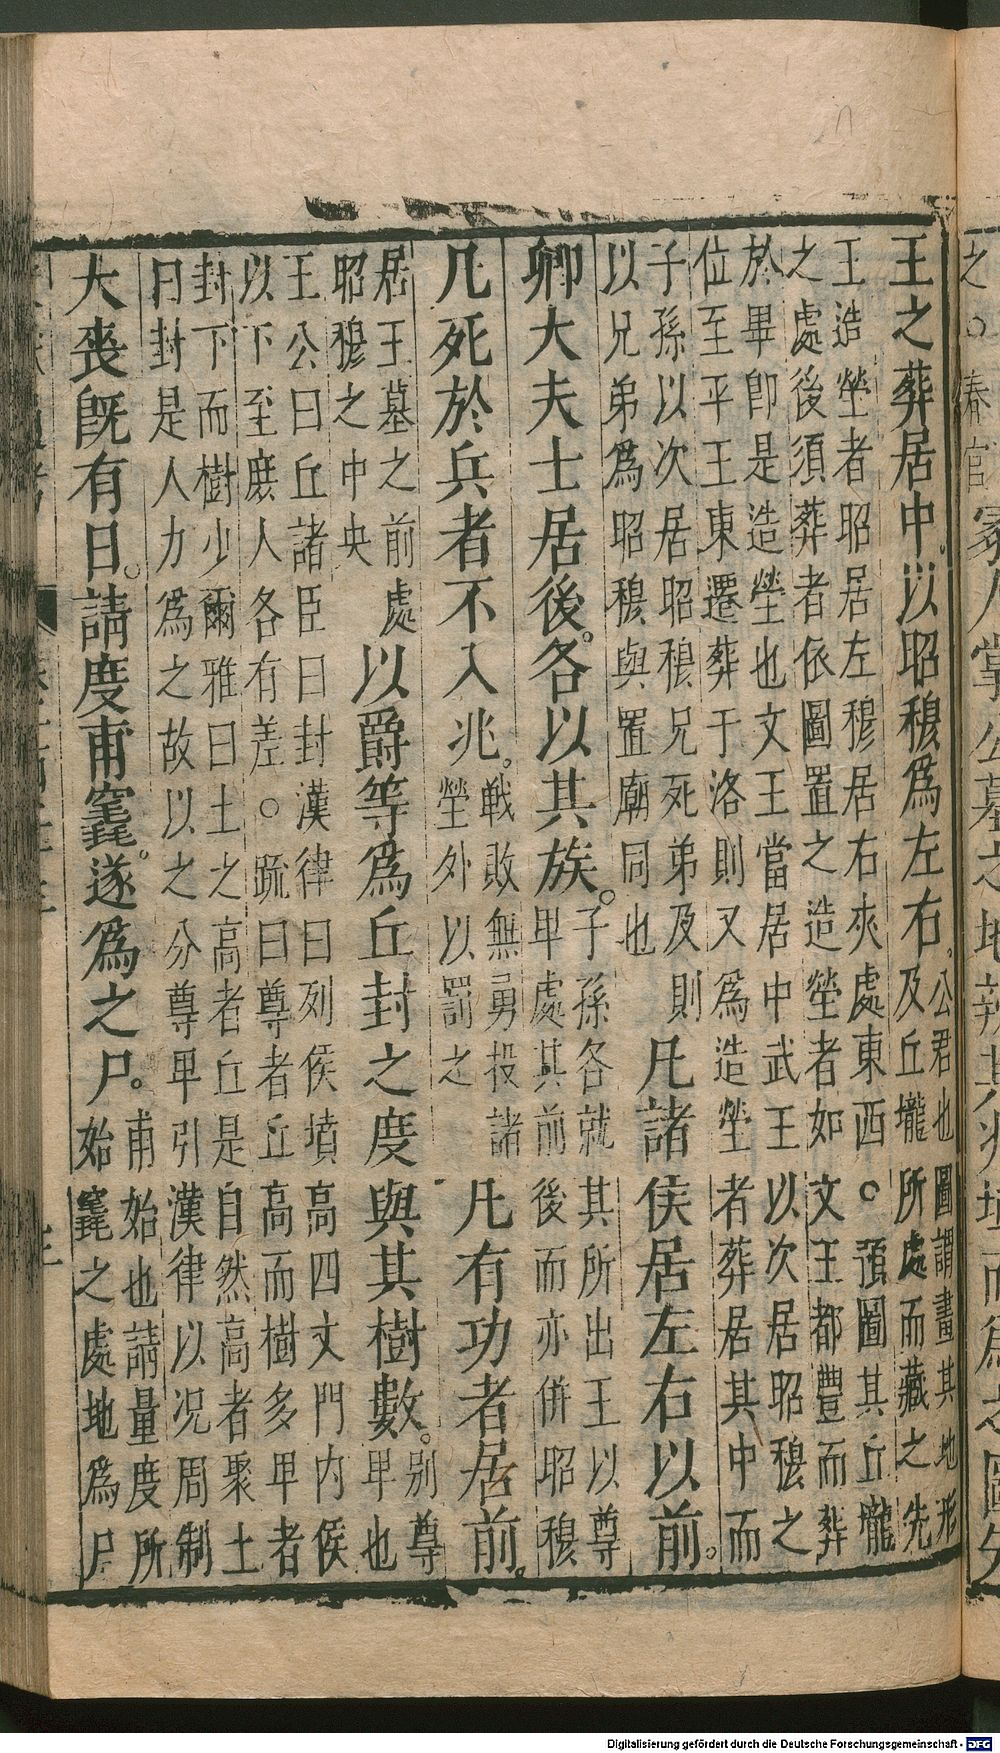 之○春官冢人掌公墓之地辨其兆域而爲之圖先
王之葬居中以昭穆爲左右。
公君也圖謂畫其地形
及丘壠所處而藏之先
王造塋者昭居左穆居右夾處東西○預圖其丘壠
之處後須葬者依圖置之造塋者如文王都豐而葬
於畢即是造塋也文王當居中武王以次居昭穆之
位至平王東遷葬于洛則又爲造塋者葬居其中而
子孫以次居昭穆兄死弟及則
以兄弟爲昭穆與置廟同也
凡諸侯居左右以前。
卿大夫士居後。各以其族。
子孫各就其所出王以尊
卑處其前後而亦併昭穆
凡死於兵者不入兆。
戰敗無勇投諸
塋外以罰之
凡有功者居前。
居王墓之前處
昭穆之中央
以爵等爲丘封之度與其樹數。
別尊
卑也
王公曰丘諸臣曰封漢律曰列侯墳高四文門内侯
以下至庶人各有差○䟽曰尊者丘高而樹多卑者
封下而樹少爾雅曰土之高者丘是自然高者聚土
曰封是人力爲之故以之分尊卑引漢律以况周制
大喪旣有日。請度甫竁。遂爲之尸。
甫始也請量度所
始竁之處地爲尸
Digitalisierung gefördert durch die Deutsche Forschungsgemeinschaft - DFG